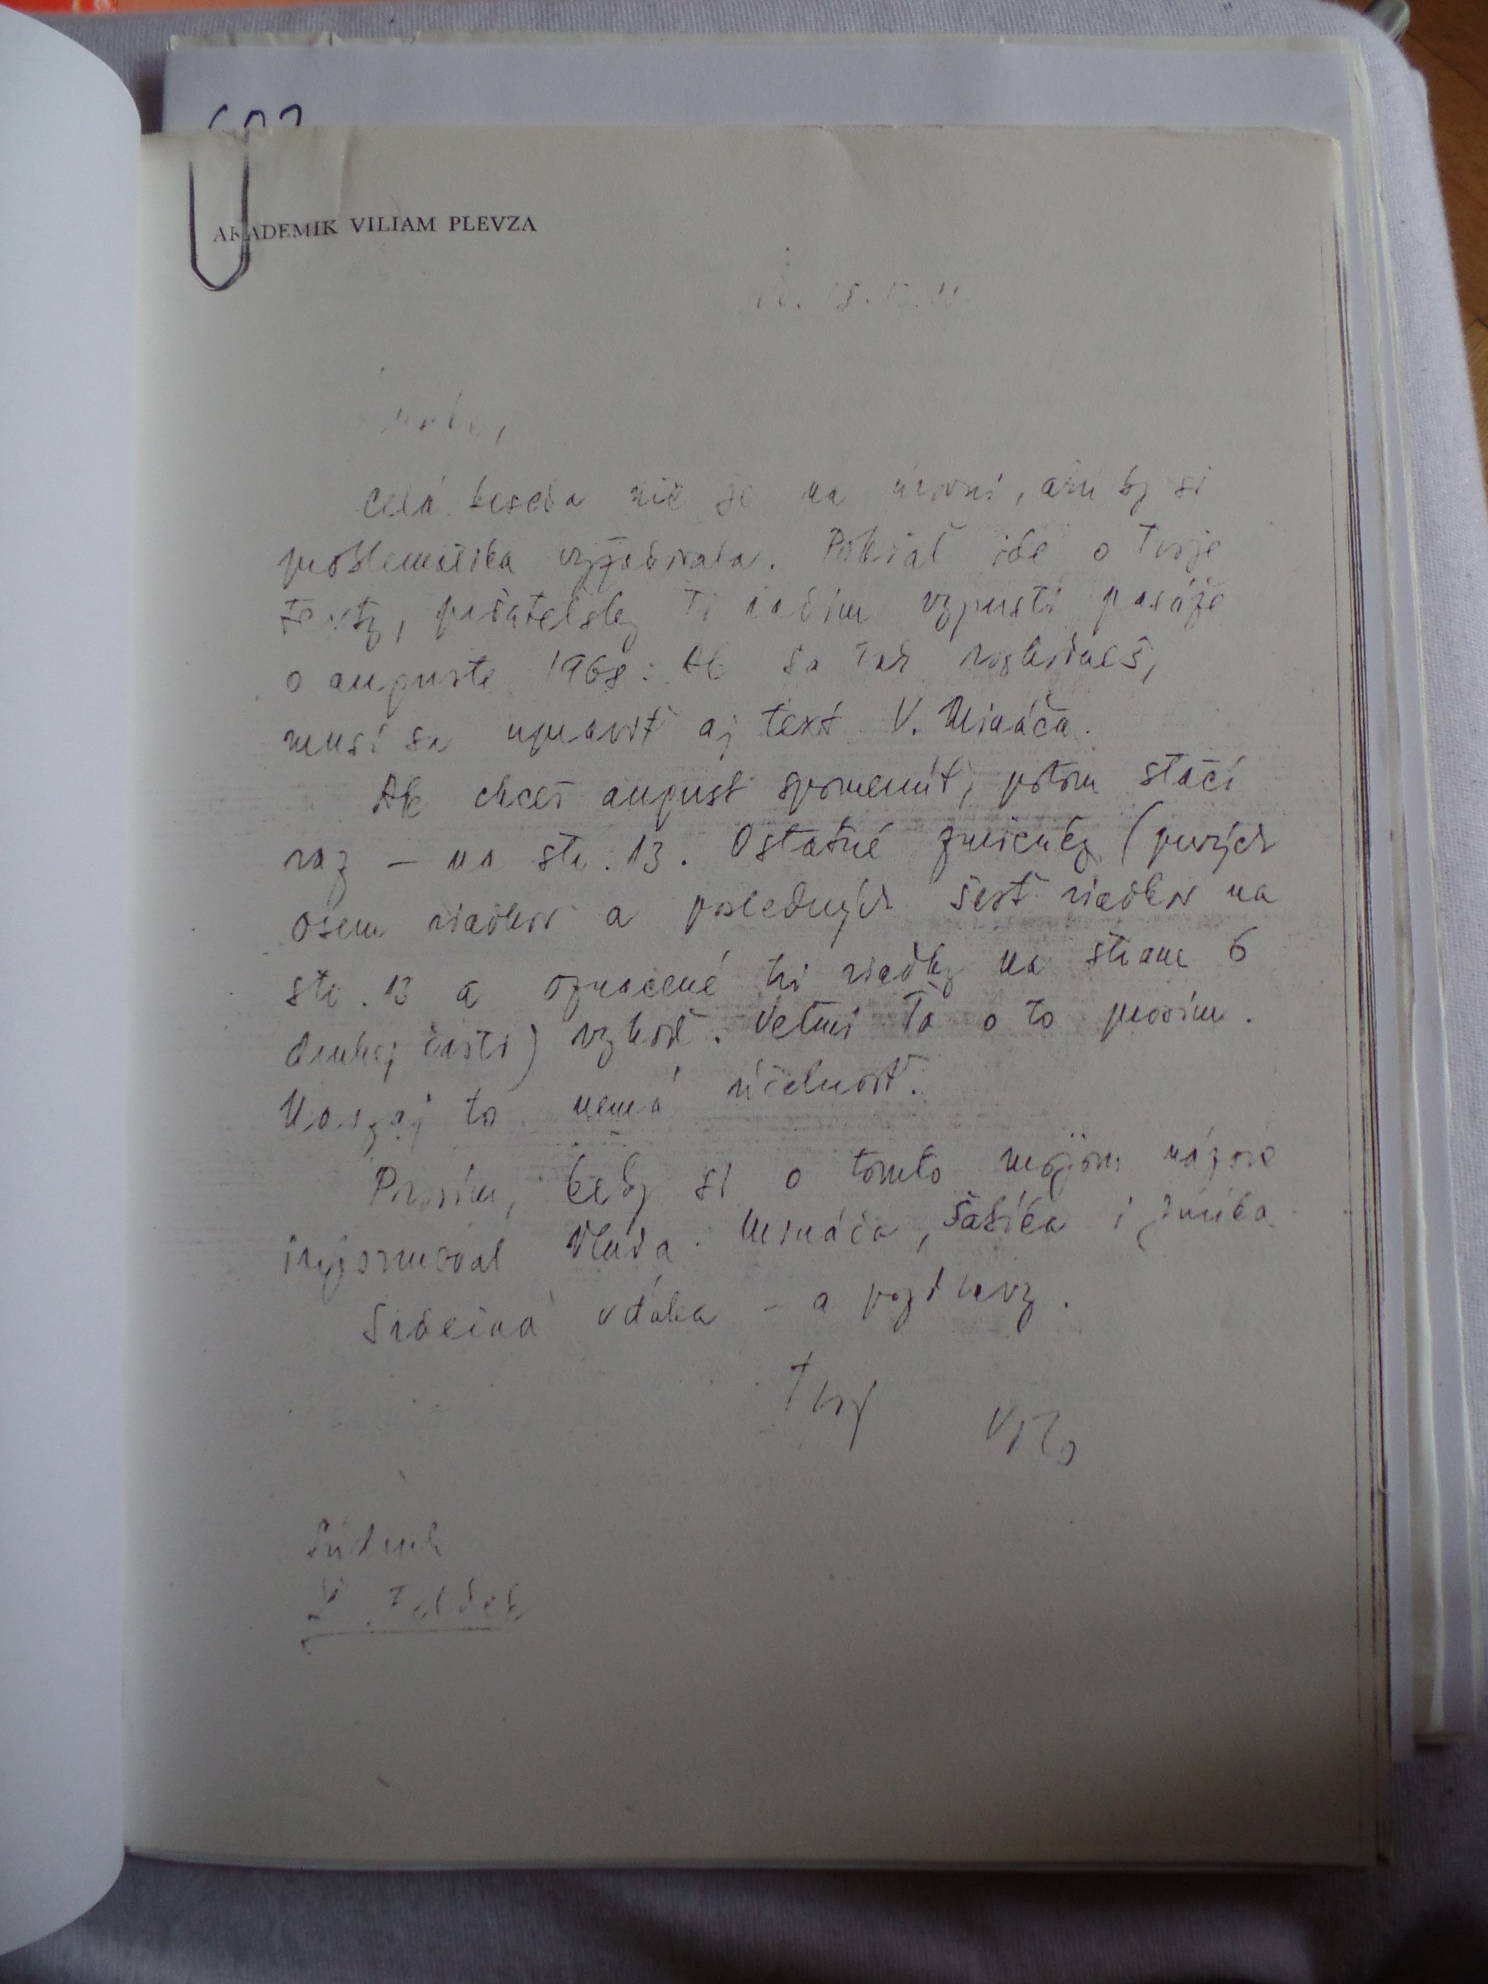 AKADEMIK VILIAM PLEVZA
Celá beseda nie je na úrovni, akú by si
problematika vyžadovala. Pokiaľ ide o Tvoje
texty, priateľsky Ti radím vypusti pasáže
o auguste 1968. Ak sa tak rozhodneš,
musí sa upraviť aj text V. Mináča.
Ak chceš august spomenúť, potom stačí
raz – na str. 13. Ostatné zmienky (prvých
osem riadkov a posledných šesť riadkov na
str. 13 a označené tri riadky na strane 6
druhej časti) vyhoď. Veľmi Ťa o to prosím.
Naozaj to nemá účelnosť.
Prosím, keby si o tomto mojom názore
informoval Vlada Mináča, i
Srdečná vďaka – a pozdravy.
Tvoj
Súdruh
Ľ. Feldek